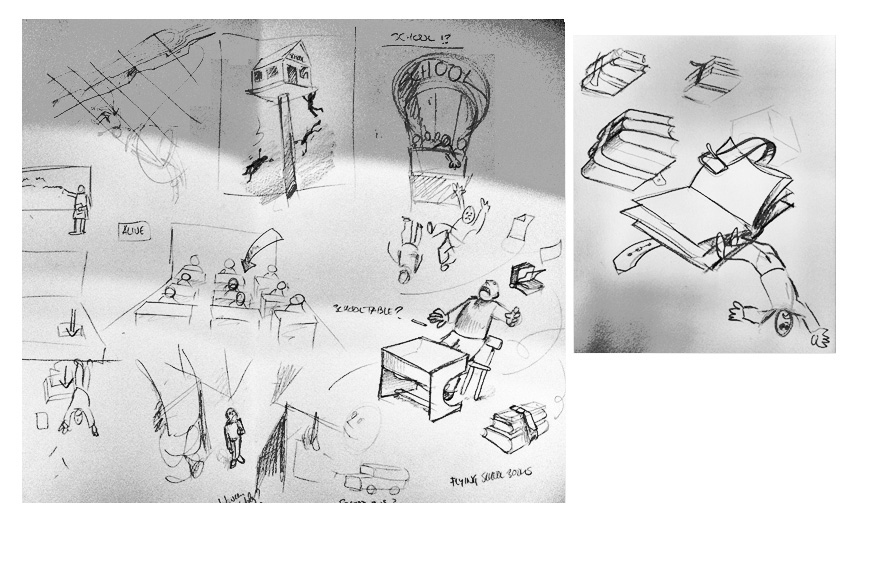 SCHOOL !?
SCHOOL
SCHOOL
ALIVE
SCHOOL TABLE?
FLYING SCHOOL BOOKS